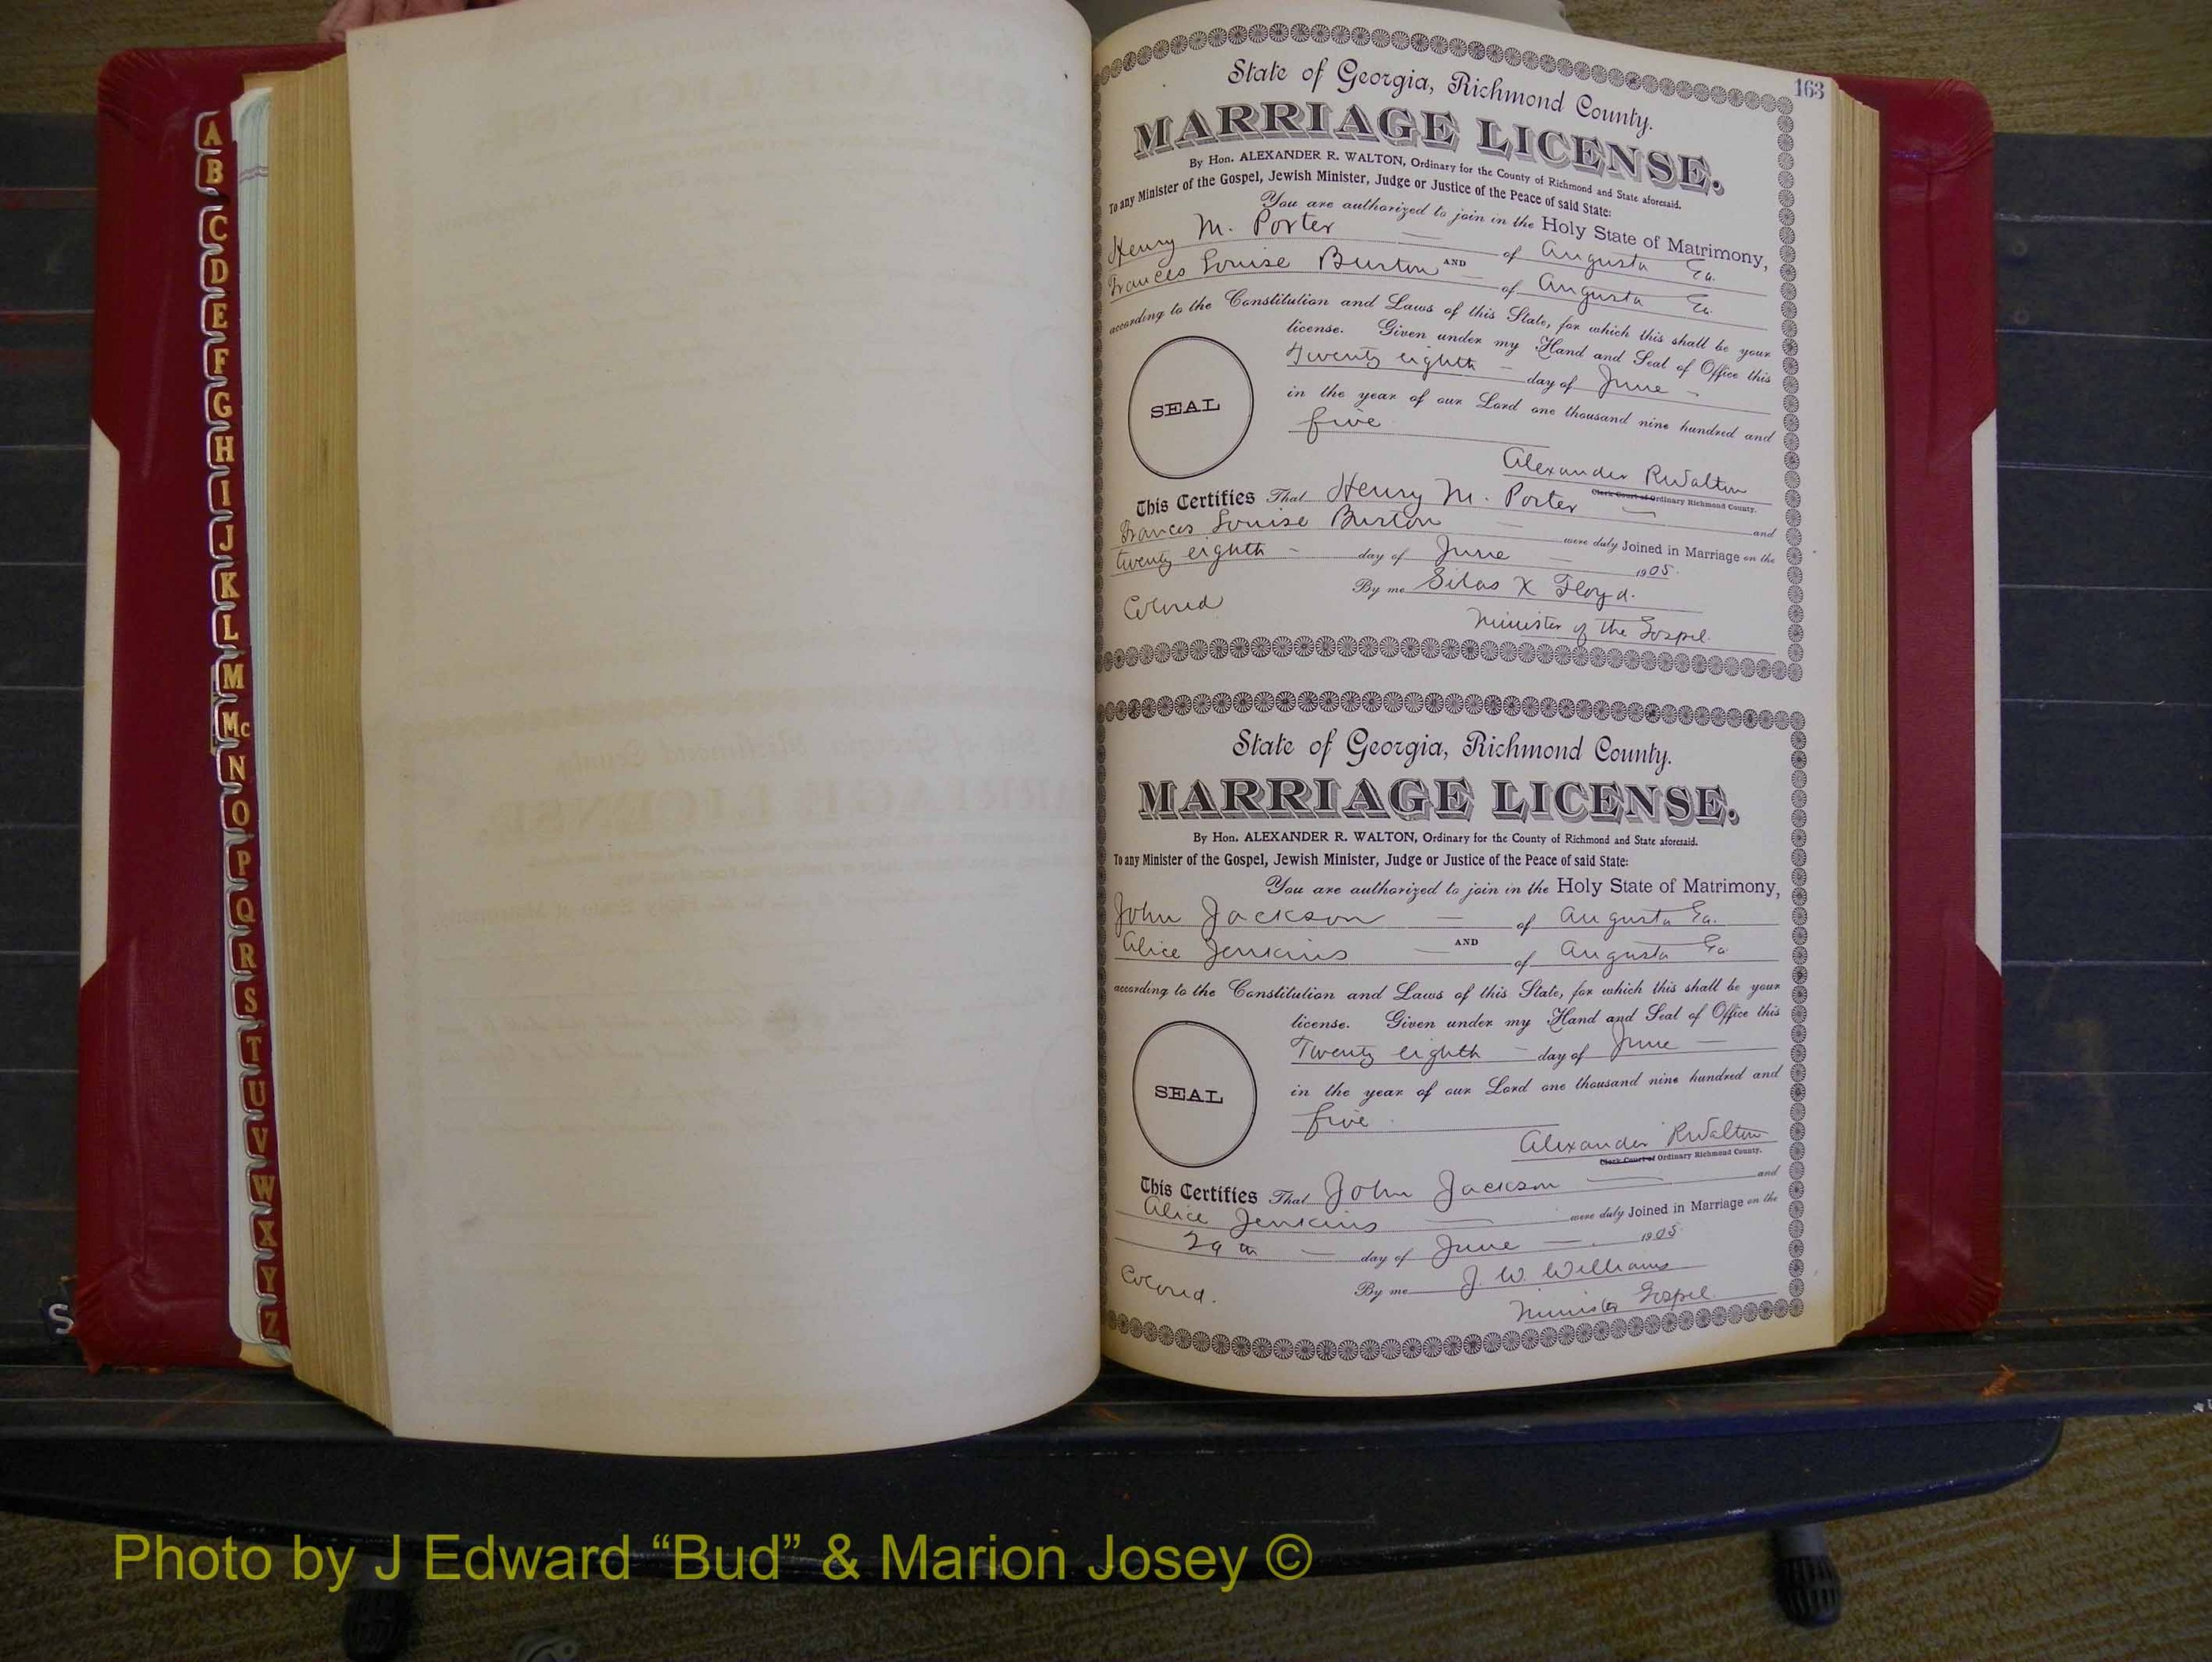 A
B
C
D
E
F
G
H
I
J
K
L
M
Mc
N
O
P
Q
R
S
T
U
V
W
X
Y
Z
S
163
State of Georgia, Richmond County.
MARRIAGE LICENSE.
By Hon. ALEXANDER R. WALTON, Ordinary for the County of Richmond and State aforesaid.
To any Minister of the Gospel, Jewish Minister, Judge or Justice of the Peace of said State:
You are authorized to join in the Holy State of Matrimony,
Henry M. Porter — of Augusta Ga.
Frances Louise Burton AND — of Augusta Ga.
according to the Constitution and Laws of this State, for which this shall be your
license. Given under my Hand and Seal of Office this
Twenty eighth — day of June —
in the year of our Lord one thousand nine hundred and
five
SEAL
Alexander R Walton
Clerk Court of Ordinary Richmond County.
This Certifies That Henry M. Porter — and
Frances Louise Burton — were duly Joined in Marriage on the
twenty eighth — day of June 1905.
By me Silas X Floyd.
Colored
Minister of the Gospel.
State of Georgia, Richmond County.
MARRIAGE LICENSE.
By Hon. ALEXANDER R. WALTON, Ordinary for the County of Richmond and State aforesaid.
To any Minister of the Gospel, Jewish Minister, Judge or Justice of the Peace of said State:
You are authorized to join in the Holy State of Matrimony,
John Jackson — of Augusta Ga.
Alice Jenkins — AND of Augusta Ga
according to the Constitution and Laws of this State, for which this shall be your
license. Given under my Hand and Seal of Office this
Twenty eighth — day of June —
in the year of our Lord one thousand nine hundred and
five
SEAL
Alexander R Walton
Clerk Court of Ordinary Richmond County.
This Certifies That John Jackson — and
Alice Jenkins — were duly Joined in Marriage on the
29th — day of June — 1905
By me J. W. Williams
Colored.
Minister Gospel.
Photo by J Edward “Bud” & Marion Josey ©